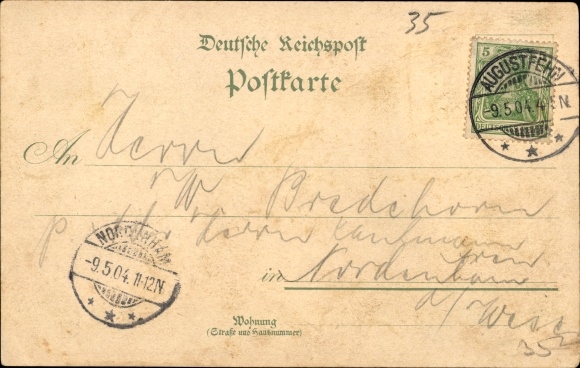 35
Deutsche Reichspost
Postkarte
5
AUGUSTFEHN
-9.5.04. 4-5N.
An Herrn
W Bredehorn
p. Adr. Herrn Kaufmann
NORDENHAM
-9.5.04. 11-12N
in Nordenham
a/ Weser
Wohnung
(Straße und Hausnummer)
35